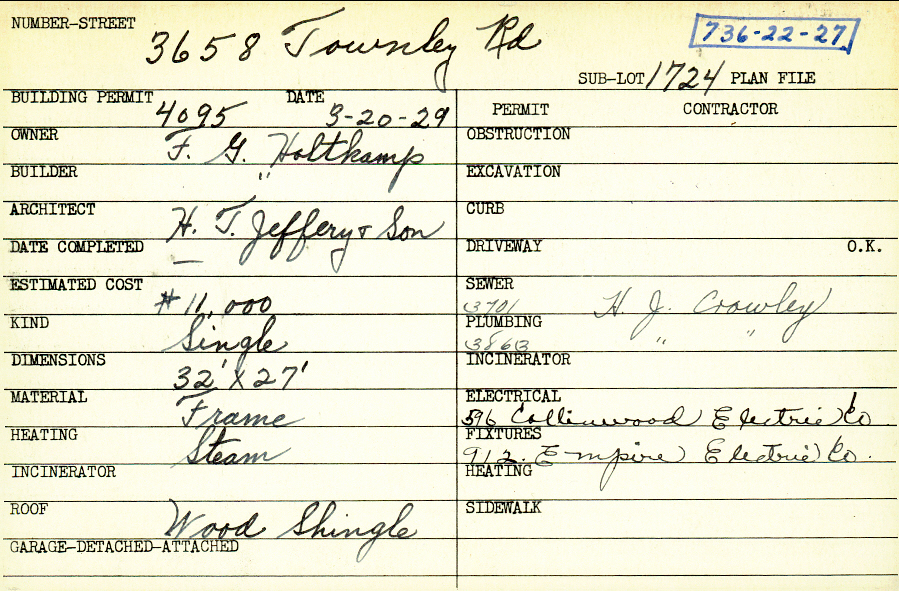 NUMBER-STREET 3658 Townley Rd 736-22-27
SUB-LOT 1724 PLAN FILE
BUILDING PERMIT 4095 DATE 3-20-29
OWNER F. G. Holtkamp
BUILDER "
ARCHITECT H. T. Jeffery & Son
DATE COMPLETED —
ESTIMATED COST $11,000
KIND Single
DIMENSIONS 32' X 27'
MATERIAL Frame
HEATING Steam
INCINERATOR
ROOF Wood Shingle
GARAGE-DETACHED-ATTACHED
PERMIT CONTRACTOR
OBSTRUCTION
EXCAVATION
CURB
DRIVEWAY O.K.
SEWER 3701 H. J. Crowley
PLUMBING 3863 " "
INCINERATOR
ELECTRICAL 596 Collinwood Electric Co
FIXTURES 912. Empire Electric Co.
HEATING
SIDEWALK